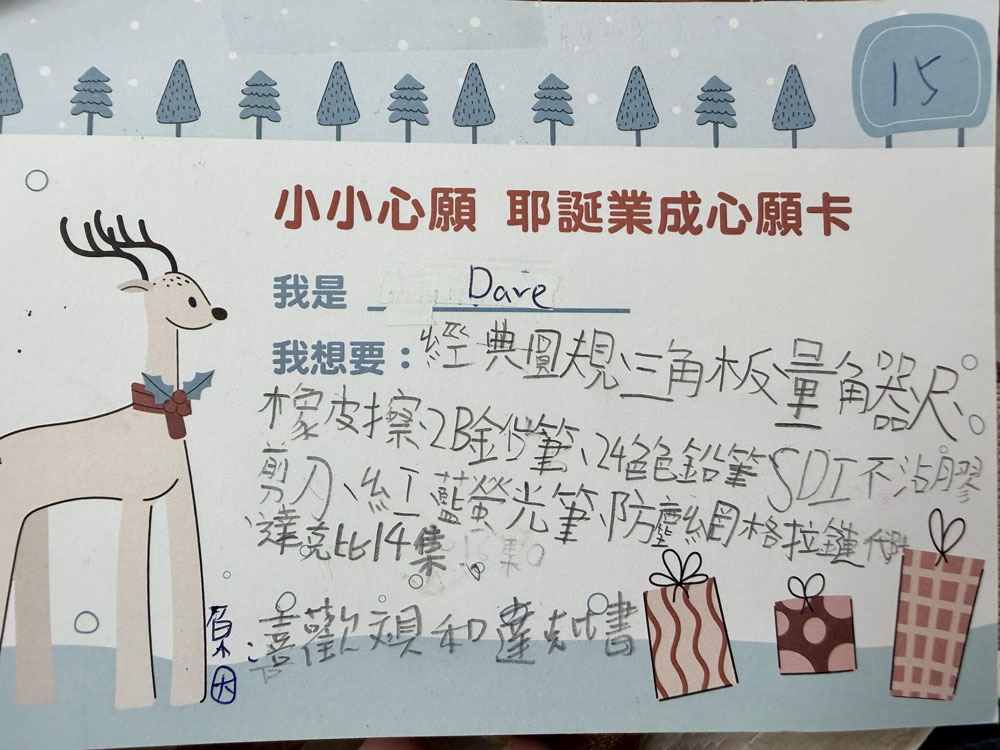 15
小小心願 耶誕業成心願卡
我是 Dave
我想要：經典圓規、三角板、量角器尺、
橡皮擦、2B鉛筆、24色色鉛筆SDI不沾膠
剪刀、紅藍螢光筆、防塵網格拉鏈袋
達克比14集
喜歡 和達克比書